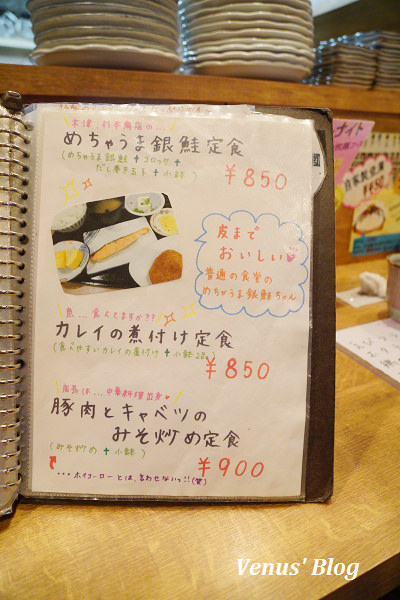 木津 鈴木商店の...
めちゃうま銀鮭定食
(めちゃうま銀鮭 + コロッケ +
だし巻き玉子 + 小鉢)
¥850
皮まで
おいしい
普通の食堂の
めちゃうま銀鮭ちゃん
魚...食べてますか??
カレイの煮付け定食
(食べやすいカレイの煮付け + 小鉢2品)
¥850
店長は...中華料理出身
豚肉とキャベツの
みそ炒め定食
(みそ炒め + 小鉢)
¥900
...ホイコーローとは、言わせないっ!!(笑)
ナイト
Venus' Blog